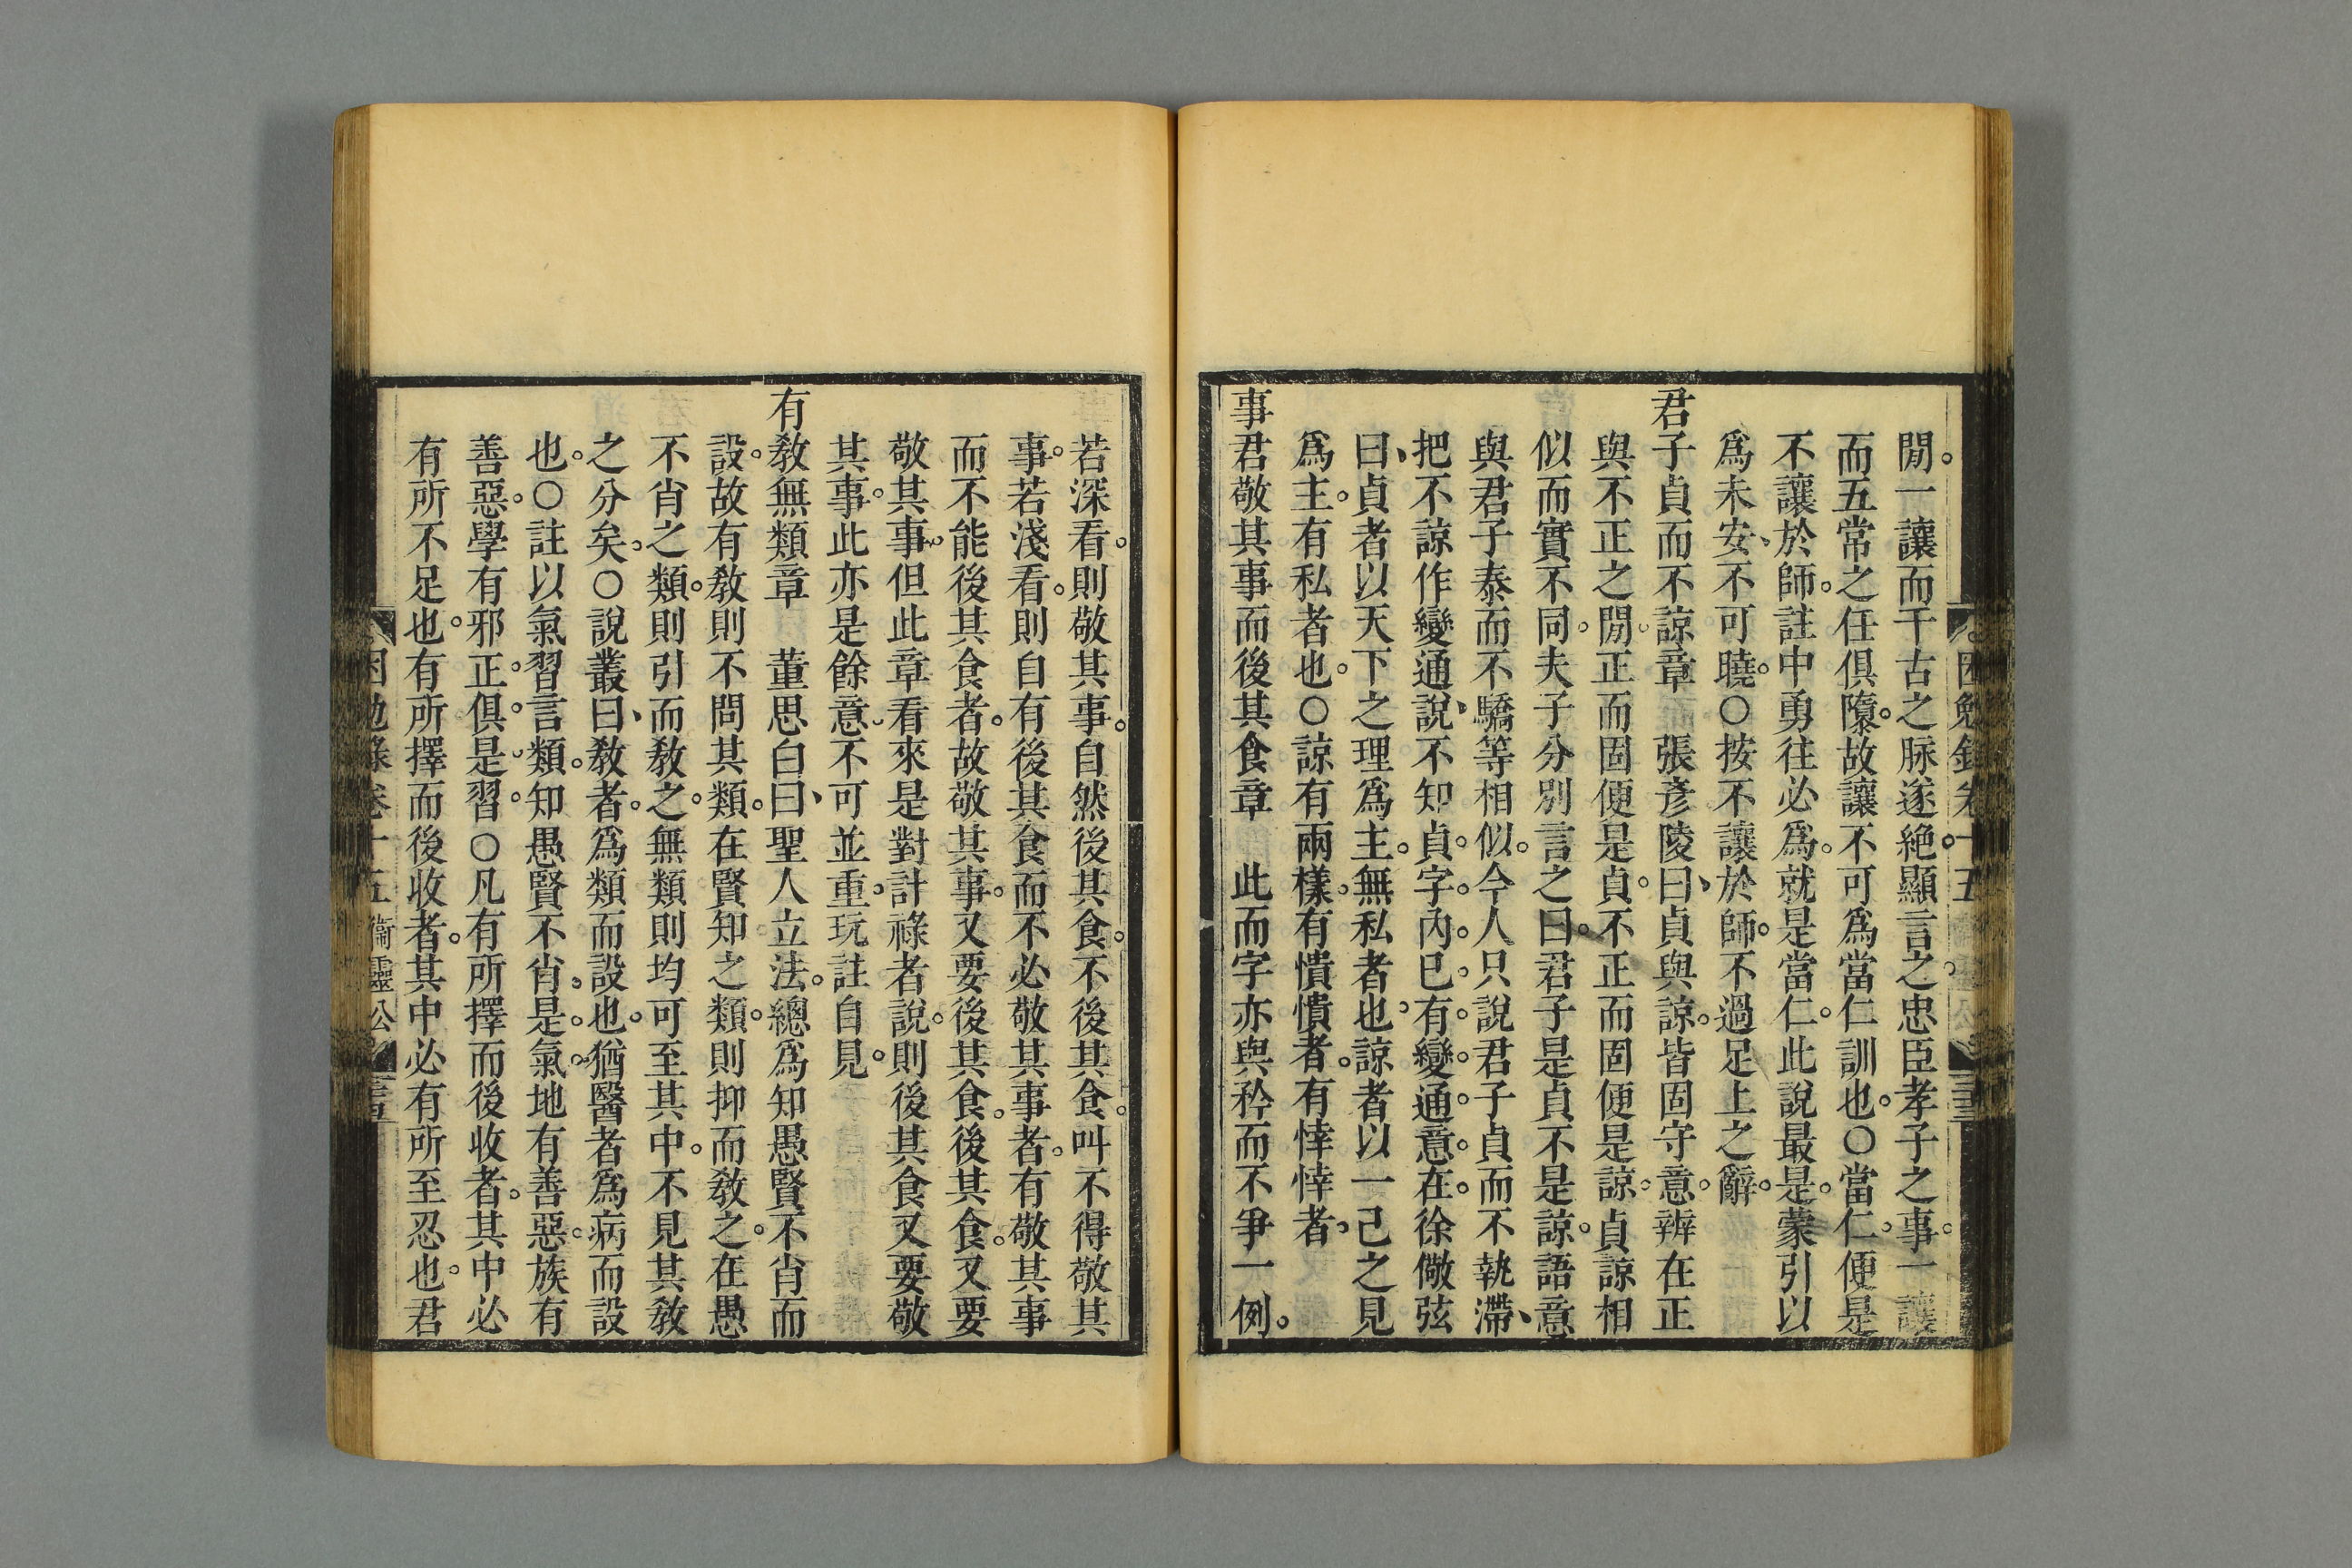 閒。一讓而千古之脉遂絶。顯言之。忠臣孝子之事。一讓
而五常之任俱隳。故讓不可爲當仁訓也。○當仁、便是
不讓於師。註中勇往必爲。就是當仁。此說最是。蒙引以
爲未安、不可曉。○按不讓於師。不過足上之辭。
君子貞而不諒章　張彥陵曰、貞與諒。皆固守意。辨在正
與不正之閒。正而固便是貞。不正而固便是諒。貞諒相
似而實不同。夫子分別言之曰。君子是貞不是諒。語意
與君子泰而不驕等相似。今人只說君子貞而不執滯、
把不諒作變通說、不知貞。字。內。已。有。變。通。意。在。徐儆弦
曰、貞者以天下之理爲主。無私者也、諒者以一己之見
爲主。有私者也。○諒有兩樣。有憒憒者。有悻悻者、
事君敬其事而後其食章　此而字亦與矜而不爭一例。
若深看。則敬其事。自然後其食。不後其食。叫不得敬其
事。若淺看。則自有後其食而不必敬其事者。有敬其事
而不能後其食者。故敬其事。又要後其食。後其食。又要
敬其事。但此章看來是對計祿者說。則後其食又要敬
其事。此亦是餘意、不可並重、玩註自見。
有敎無類章　董思白曰、聖人立法。總爲知愚賢不肖而
設。故有敎則不問其類。在賢知之類。則抑而敎之。在愚
不肖之類。則引而敎之。無類則均可至其中。不見其敎
之分矣。○說叢曰、敎者。爲類而設也。猶醫者爲病而設
也。○註以氣習言類。知愚賢不肖。是。氣。地有善惡。族有
善惡。學有邪正。俱。是。習。○凡有所擇而後收者。其中必
有所不足也。有所擇而後收者。其中必有所至忍也。君
困勉錄卷十五 衞靈公